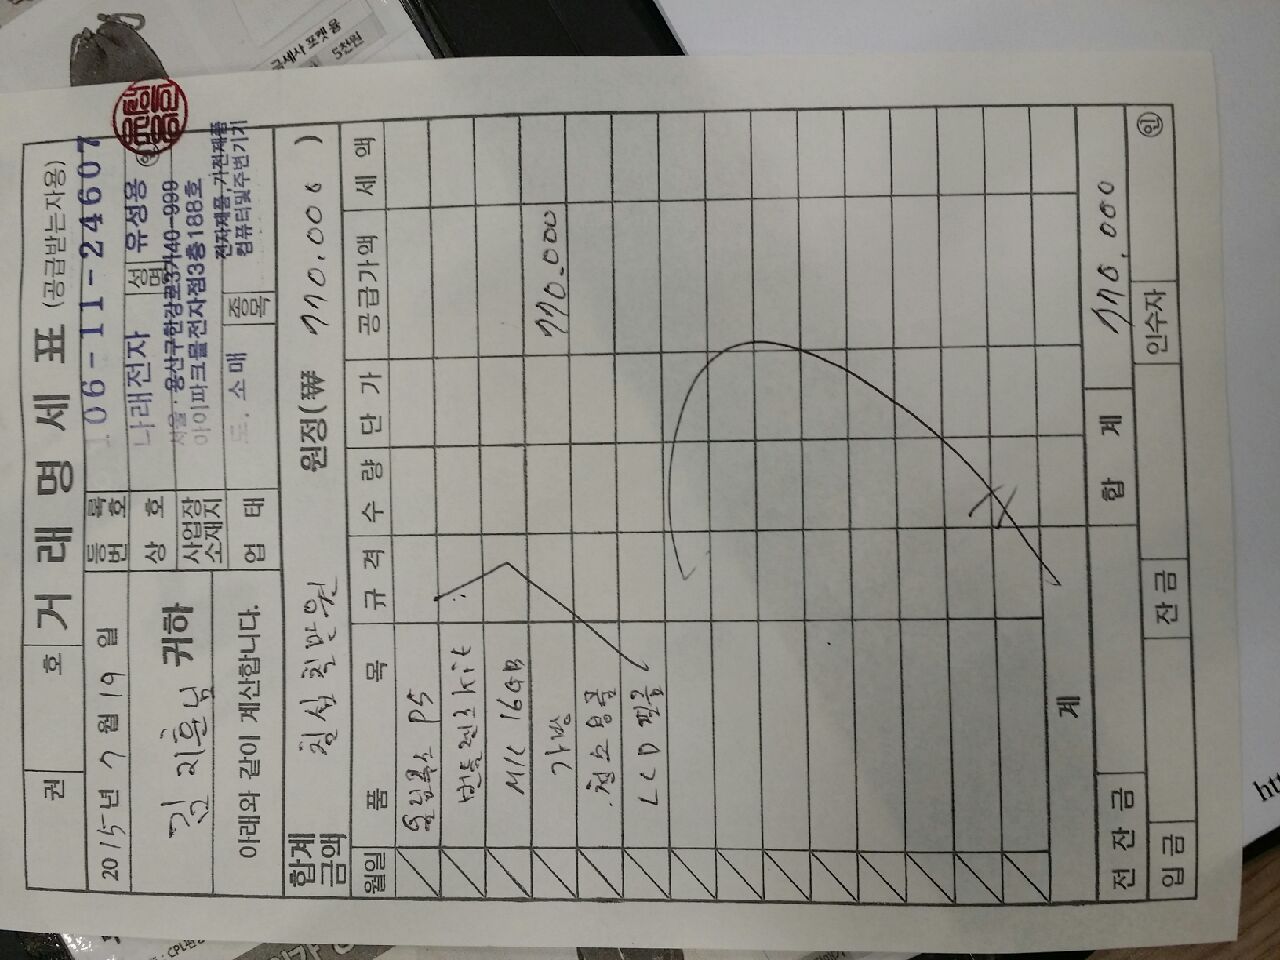 권 호 거 래 명 세 표 (공급받는자용)
2015년 7월 19일
김지훈님 귀하
아래와 같이 계산합니다.
등록번호 106-11-24607
상호 나래전자 성명 유성용 ㊞
사업장소재지 서울·용산구한강로3가40-999
아이파크몰전자점3층188호
업태 도.소매 종목 전자제품,가전제품
컴퓨터및주변기기
합계금액 칠십칠만원 원정(₩ 770.000 )
월일 품 목 규 격 수 량 단 가 공급가액 세 액
올림푸스 P5
번들렌즈 kit
M/C 16GB
가방 770.000
청소용품
LCD 필름
계
전잔금 합 계 770.000
입금 잔금 인수자 ㊞
국세사 포켓용
5천원
CPL
htt